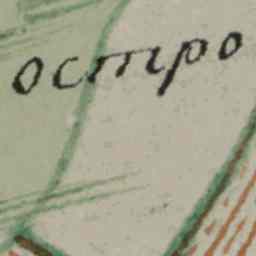 остро